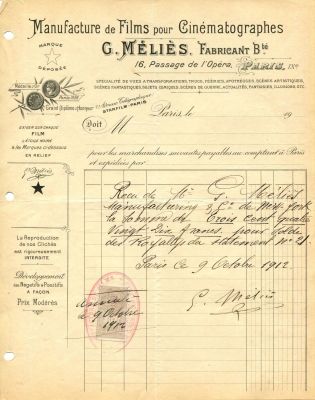 Manufacture de Films pour Cinématographes
G. MÉLIÈS, FABRICANT Bté
16, Passage de l'Opéra,
PARIS
MARQUE
DÉPOSÉE
SPÉCIALITÉ DE VUES A TRANSFORMATIONS, TRUCS, FÉERIES, APOTHÉOSES, SCÈNES ARTISTIQUES,
SCÈNES FANTASTIQUES, SUJETS COMIQUES, SCÈNES DE GUERRE, ACTUALITÉS, FANTAISIES, ILLUSIONS, ETC.
Adresse Télégraphique
STARFILM-PARIS
Grand Diplôme d'honneur
Paris, le 19
Doit M
pour les marchandises suivantes payables au comptant à Paris
et expédiées par
EXIGER SUR CHAQUE
FILM
L'ÉTOILE NOIRE
& les Marques ci-dessous
EN RELIEF
G. Méliès
La Reproduction
de nos Clichés
est rigoureusement
INTERDITE
Développement
des Négatifs & Positifs
A FAÇON
Prix Modérés
Reçu de M G. Méliès
Manufacturing & Co de New York
la somme de Trois cent quatre
Vingt dix francs, pour solde
des Royalties du Statement No 21.
Paris ce 9 Octobre 1912
G. Méliès
9 Octobre
1912